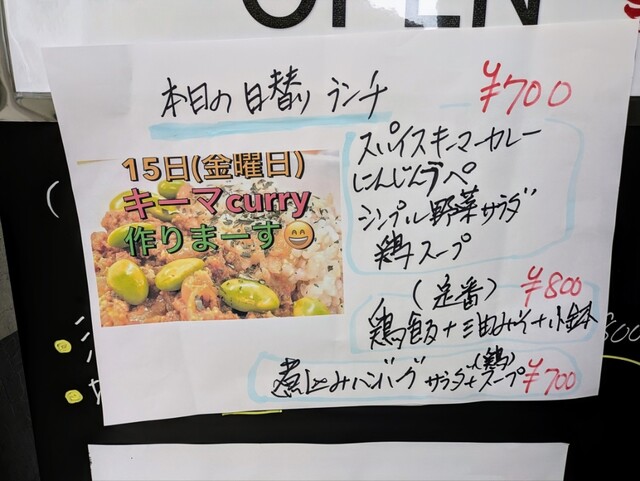 OPEN
本日の日替り ランチ ¥700
15日(金曜日)
キーマcurry
作りまーす😄
スパイスキーマカレー
にんじんラペ
シンプル野菜サラダ
鶏スープ
(定番) ¥800
鶏飯+三曲みそ+小鉢
煮込みハンバーグ サラダ+(鶏)スープ ¥700